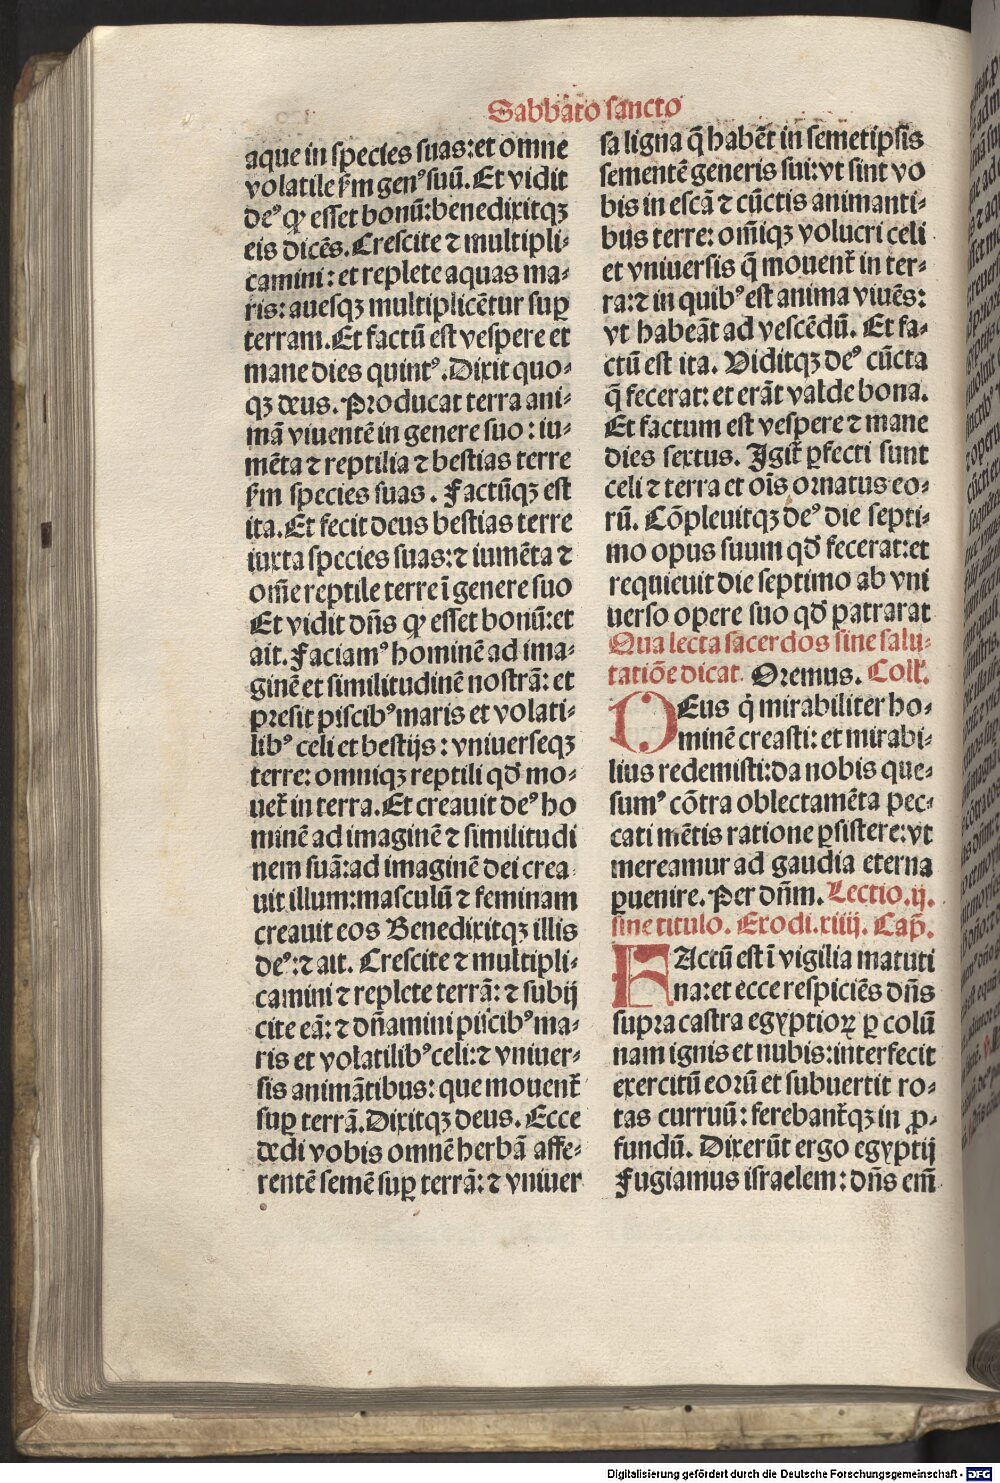 Sabbato sancto
aque in species suas:et omne
volatile ẜm genꝰ suū. Et vidit
deꝰ ꝙ esset bonū:benedixitqꝫ
eis dicēs. Crescite ⁊ multipli⸗
camini: et replete aquas ma⸗
ris: auesqꝫ multiplicētur suꝑ
terram. Et factū est vespere et
mane dies quintꝰ. Dixit quo⸗
qꝫ deus. Producat terra ani⸗
mā viuentē in genere suo: iu⸗
mēta ⁊ reptilia ⁊ bestias terre
ẜm species suas. Factūqꝫ est
ita. Et fecit deus bestias terre
iuxta species suas:⁊ iumēta ⁊
om̄e reptile terre ī genere suo
Et vidit dn̄s ꝙ esset bonū:et
ait. Faciamꝰ hominē ad ima⸗
ginē et similitudinē nostrā: et
presit piscibꝰ maris et volati⸗
libꝰ celi et bestijs: vniuerseqꝫ
terre: omniqꝫ reptili qd̄ mo⸗
uet᷑ in terra. Et creauit deꝰ ho
minē ad imaginē ⁊ similitudi
nem suā:ad imaginē dei crea
uit illum:masculū ⁊ feminam
creauit eos Benedixitqꝫ illis
deꝰ:⁊ ait. Crescite ⁊ multipli⸗
camini ⁊ replete terrā: ⁊ subij
cite eā: ⁊ dn̄amini piscibꝰ ma⸗
ris et volatilibꝰ celi:⁊ vniuer⸗
sis animātibus: que mouent᷑
suꝑ terrā. Dixitqꝫ deus. Ecce
dedi vobis omnē herbā affe⸗
rentē semē suꝑ terrā: ⁊ vniuer
sa ligna q̄ habēt in semetipsis
sementē generis sui: vt sint vo
bis in escā ⁊ cūctis animanti⸗
bus terre: om̄iqꝫ volucri celi
et vniuersis q̄ mouent᷑ in ter⸗
ra:⁊ in quibꝰ est anima viuēs:
vt habeāt ad vescēdū. Et fa⸗
ctū est ita. Viditqꝫ deꝰ cūcta
q̄ fecerat: et erāt valde bona.
Et factum est vespere ⁊ mane
dies sextus. Igit᷑ ꝑfecti sunt
celi ⁊ terra et oīs ornatus eo⸗
rū. Cōpleuitqꝫ deꝰ die septi⸗
mo opus suum qd̄ fecerat:et
requieuit die septimo ab vni
uerso opere suo qd̄ patrarat
Qua lecta sacerdos sine salu⸗
tatiōe dicat. Oremus. Coll᷑.
DEus q̇ mirabiliter ho⸗
minē creasti: et mirabi⸗
lius redemisti:da nobis que⸗
sumꝰ cōtra oblectamēta pec⸗
cati mētis ratione ꝑsistere: vt
mereamur ad gaudia eterna
ꝑuenire. Per dn̄m. Lectio.ij.
sine titulo. Exodi.xiiij. Cap̄.
FActū est ī vigilia matuti
na:et ecce respiciēs dn̄s
supra castra egyptioꝝ ꝑ colū
nam ignis et nubis:interfecit
exercitū eorū et subuertit ro⸗
tas curruū: ferebant᷑qꝫ in ꝓ⸗
fundū. Dixerūt ergo egyptij
Fugiamus israelem: dn̄s em̄
Digitalisierung gefördert durch die Deutsche Forschungsgemeinschaft - DFG